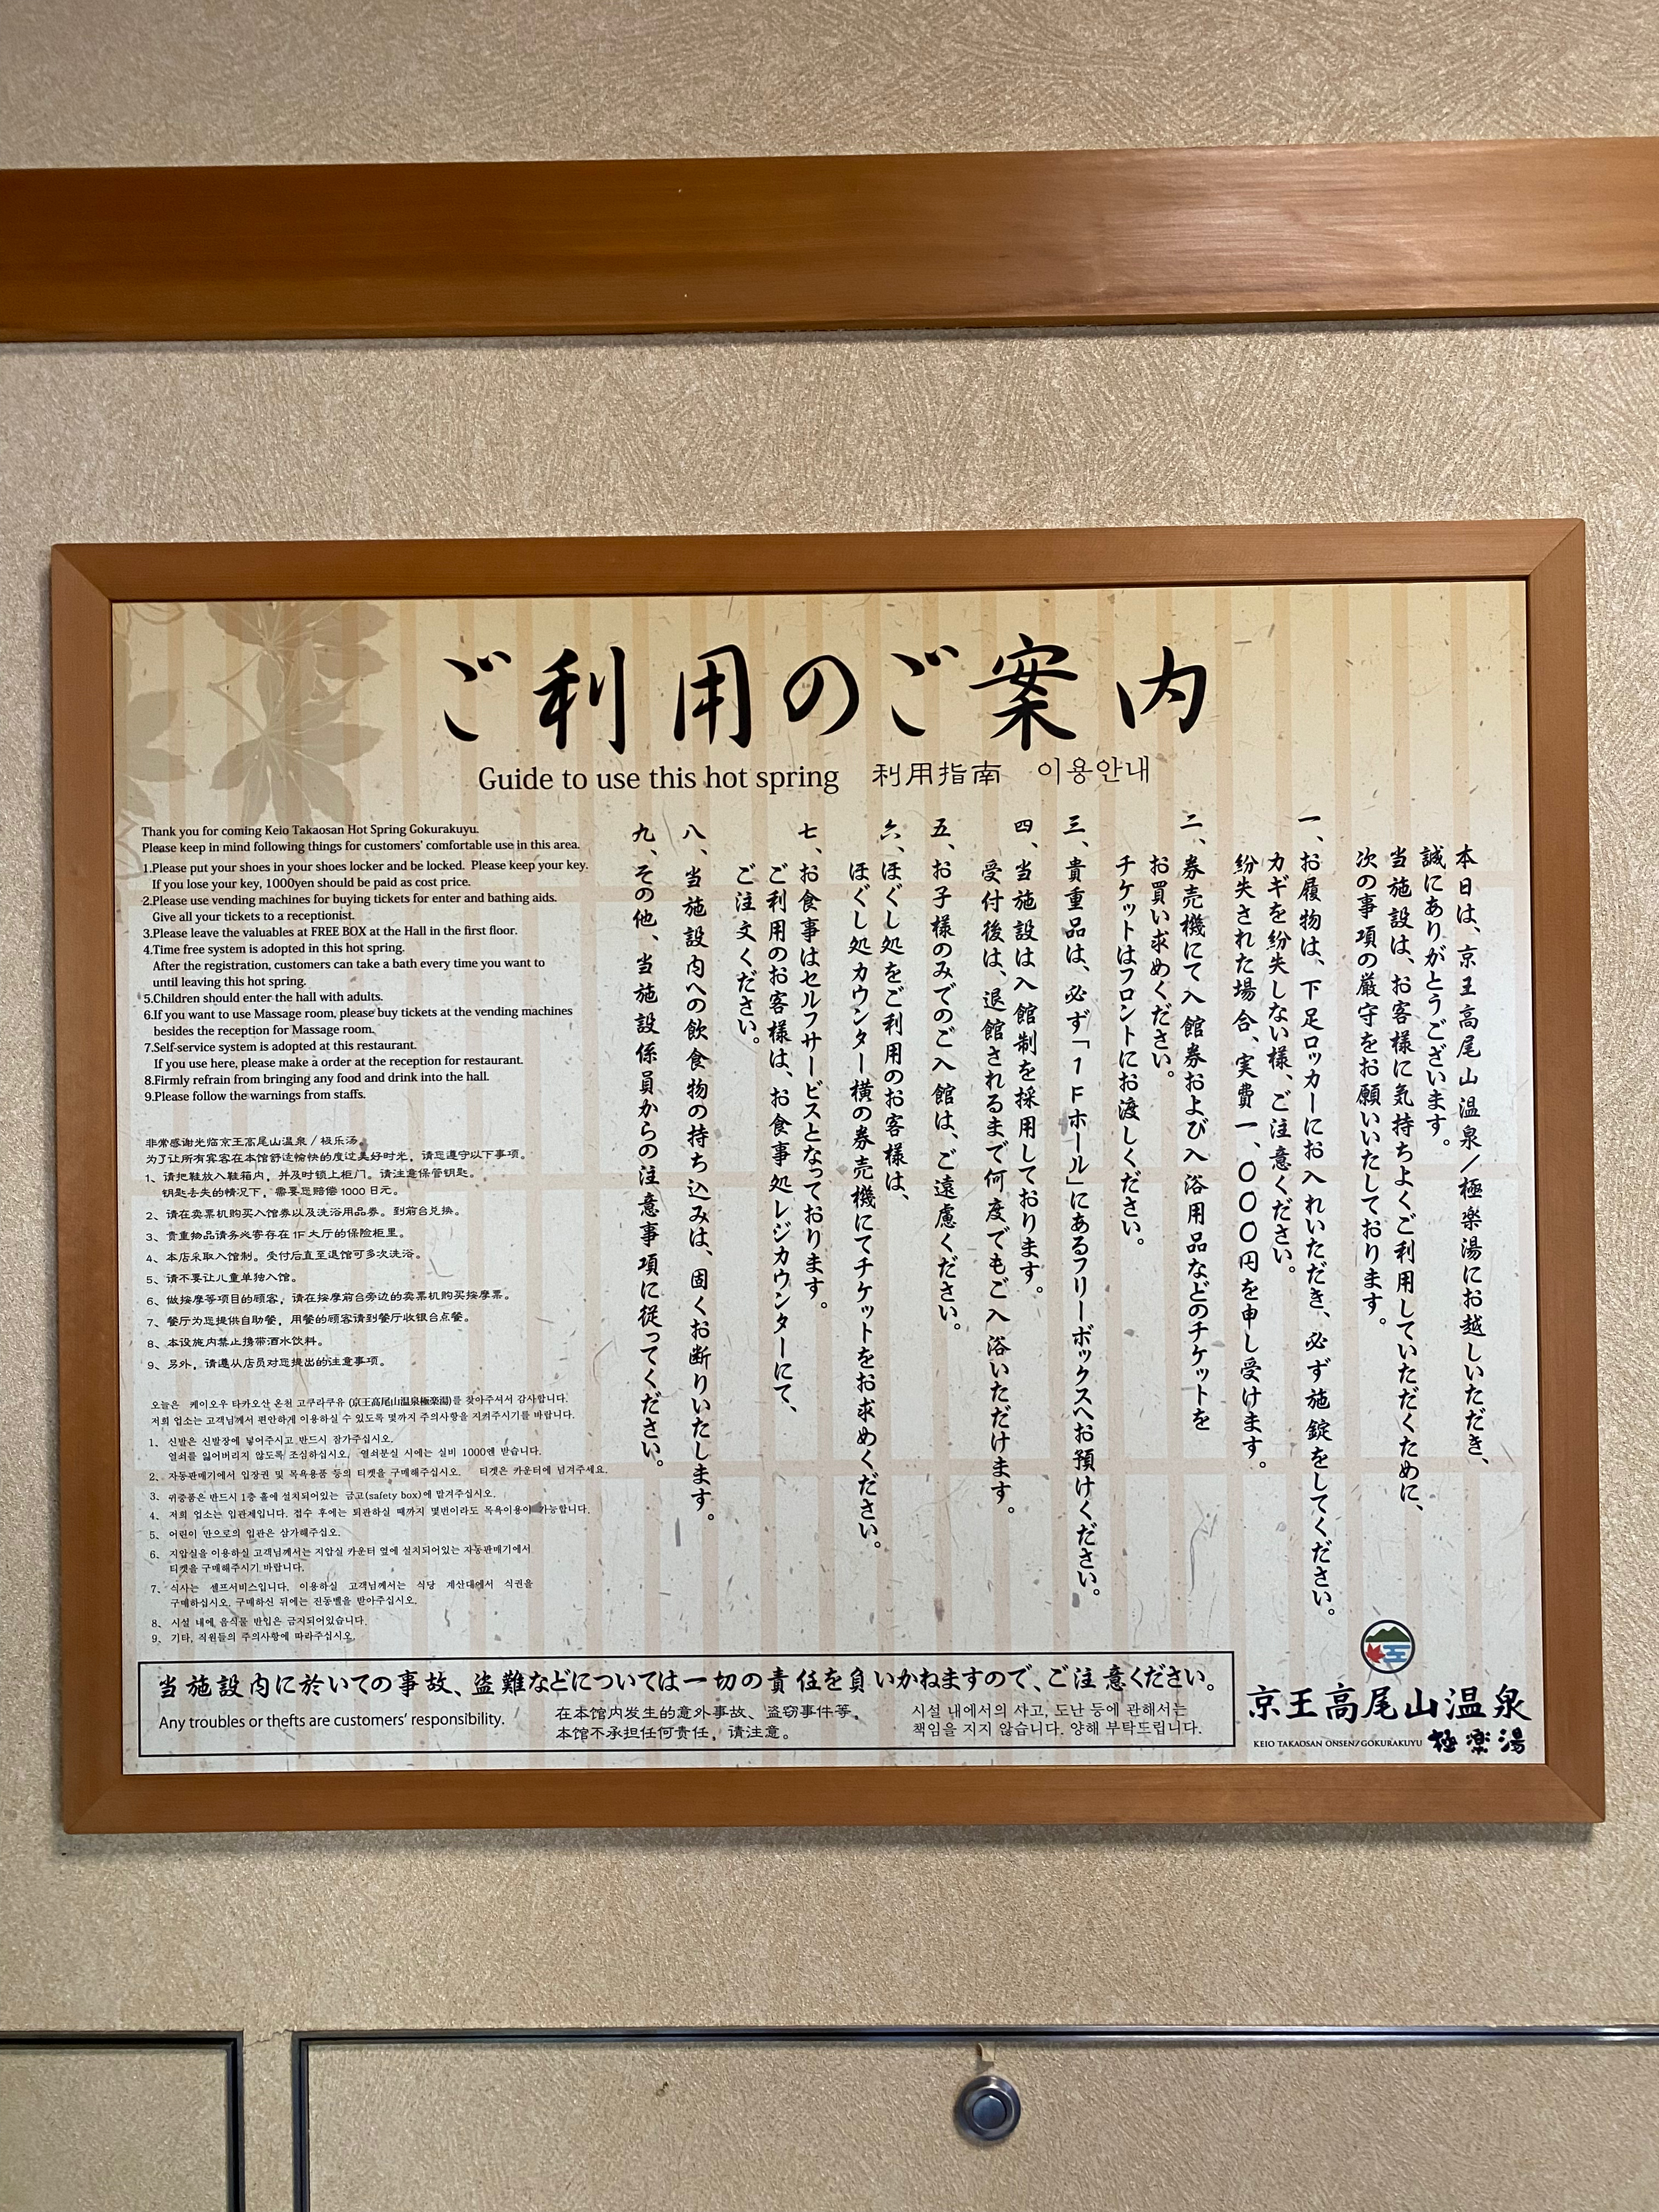 ご利用のご案内
Guide to use this hot spring 利用指南 이용안내
本日は、京王高尾山温泉／極楽湯にお越しいただき、
誠にありがとうございます。
当施設は、お客様に気持ちよくご利用していただくために、
次の事項の厳守をお願いいたしております。
一、お履物は、下足ロッカーにお入れいただき、必ず施錠をしてください。
カギを紛失しない様、ご注意ください。
紛失された場合、実費一、〇〇〇円を申し受けます。
二、券売機にて入館券および入浴用品などのチケットを
お買い求めください。
チケットはフロントにお渡しください。
三、貴重品は、必ず「1Fホール」にあるフリーボックスへお預けください。
四、当施設は入館制を採用しております。
受付後は、退館されるまで何度でもご入浴いただけます。
五、お子様のみでのご入館は、ご遠慮ください。
六、ほぐし処をご利用のお客様は、
ほぐし処カウンター横の券売機にてチケットをお求めください。
七、お食事はセルフサービスとなっております。
ご利用のお客様は、お食事処レジカウンターにて、
ご注文ください。
八、当施設内への飲食物の持ち込みは、固くお断りいたします。
九、その他、当施設係員からの注意事項に従ってください。
Thank you for coming Keio Takaosan Hot Spring Gokurakuyu.
Please keep in mind following things for customers' comfortable use in this area.
1.Please put your shoes in your shoes locker and be locked. Please keep your key.
If you lose your key, 1000yen should be paid as cost price.
2.Please use vending machines for buying tickets for enter and bathing aids.
Give all your tickets to a receptionist.
3.Please leave the valuables at FREE BOX at the Hall in the first floor.
4.Time free system is adopted in this hot spring.
After the registration, customers can take a bath every time you want to
until leaving this hot spring.
5.Children should enter the hall with adults.
6.If you want to use Massage room, please buy tickets at the vending machines
besides the reception for Massage room.
7.Self-service system is adopted at this restaurant.
If you use here, please make a order at the reception for restaurant.
8.Firmly refrain from bringing any food and drink into the hall.
9.Please follow the warnings from staffs.
非常感谢光临京王高尾山温泉／极乐汤。
为了让所有宾客在本馆舒适愉快的度过美好时光，请您遵守以下事项。
1、请把鞋放入鞋箱内，并及时锁上柜门。请注意保管钥匙。
钥匙丢失的情况下，需要您赔偿1000日元。
2、请在卖票机购买入馆券以及洗浴用品券。到前台兑换。
3、贵重物品请务必寄存在1F大厅的保险柜里。
4、本店采取入馆制。受付后直至退馆可多次洗浴。
5、请不要让儿童单独入馆。
6、做按摩等项目的顾客，请在按摩前台旁边的卖票机购买按摩票。
7、餐厅为您提供自助餐，用餐的顾客请到餐厅收银台点餐。
8、本设施内禁止携带酒水饮料。
9、另外，请遵从店员对您提出的注意事项。
오늘은 케이오우 타카오산 온천 고쿠라쿠유 (京王高尾山温泉極楽湯)를 찾아주셔서 감사합니다.
저희 업소는 고객님께서 편안하게 이용하실 수 있도록 몇까지 주의사항을 지켜주시기를 바랍니다.
1、 신발은 신발장에 넣어주시고 반드시 잠가주십시오.
열쇠를 잃어버리지 않도록 조심하십시오. 열쇠분실 시에는 실비 1000엔 받습니다.
2、 자동판매기에서 입장권 및 목욕용품 등의 티켓을 구매해주십시오. 티겟은 카운터에 넘겨주세요.
3、 귀중품은 반드시 1층 홀에 설치되어있는 금고(safety box)에 맡겨주십시오.
4、 저희 업소는 입관제입니다. 접수 후에는 퇴관하실 때까지 몇번이라도 목욕이용이 가능합니다.
5、 어린이 만으로의 입관은 삼가해주십오.
6、 지압실을 이용하실 고객님께서는 지압실 카운터 옆에 설치되어있는 자동판매기에서
티켓을 구매해주시기 바랍니다.
7、 식사는 셀프서비스입니다. 이용하실 고객님께서는 식당 계산대에서 식권을
구매하십시오. 구매하신 뒤에는 진동벨을 받아주십시오.
8、 시설 내에 음식물 반입은 금지되어있습니다.
9、 기타, 직원들의 주의사항에 따라주십시오.
当施設内に於いての事故、盗難などについては一切の責任を負いかねますので、ご注意ください。
Any troubles or thefts are customers' responsibility.
在本馆内发生的意外事故、盗窃事件等，
本馆不承担任何责任，请注意。
시설 내에서의 사고, 도난 등에 관해서는
책임을 지지 않습니다. 양해 부탁드립니다.
京王高尾山温泉
KEIO TAKAOSAN ONSEN/GOKURAKUYU 極楽湯